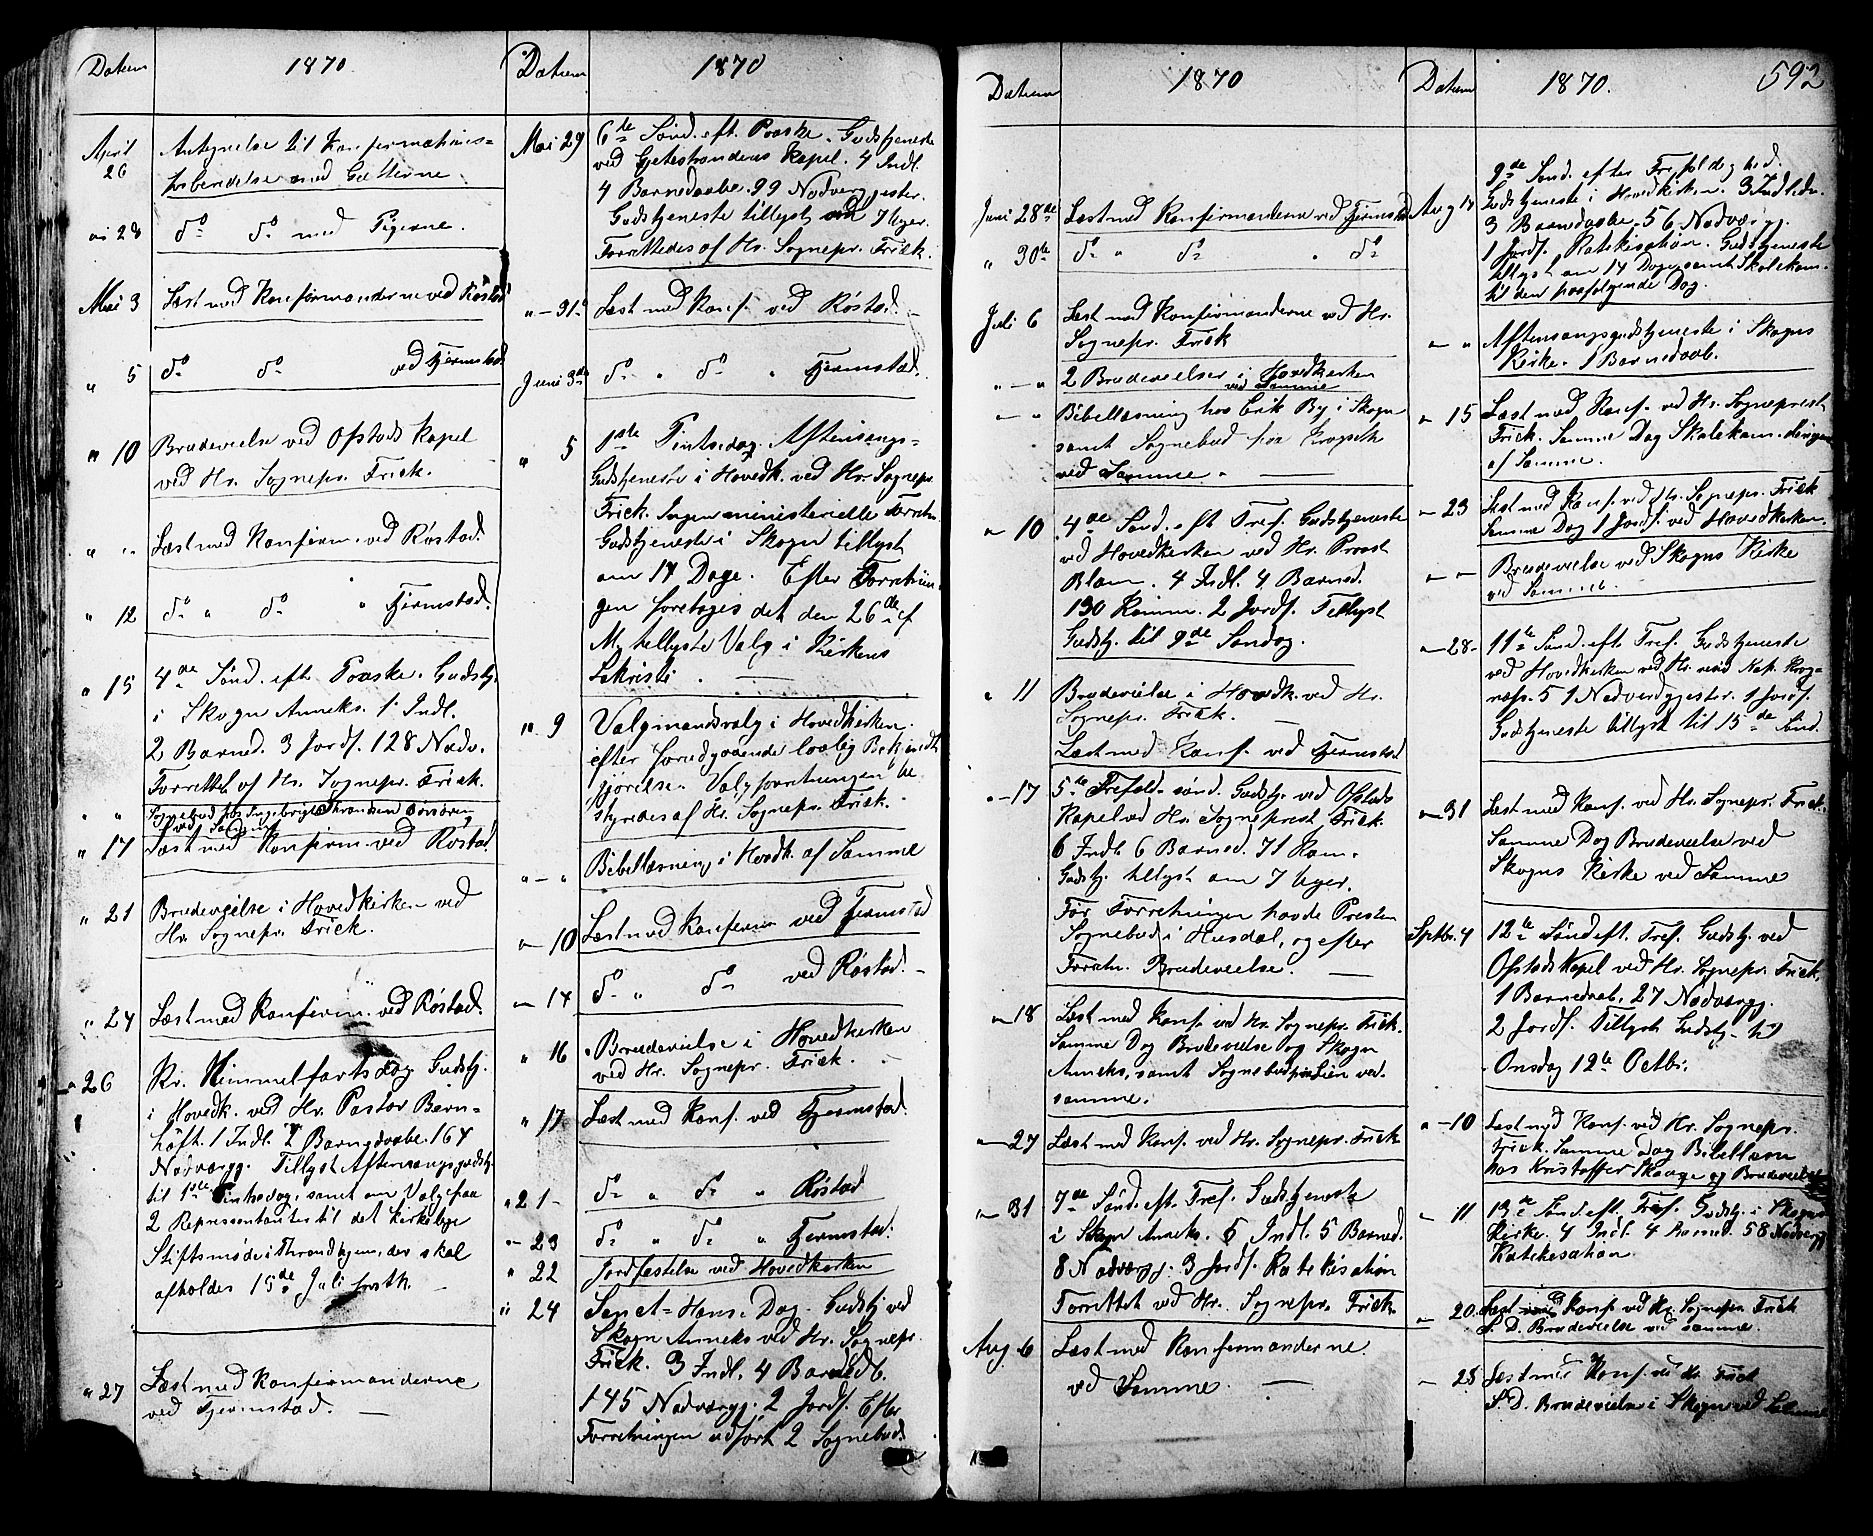 Datum 1870
April 26 Antegnelse til Konfirmations=
forberedelse med Gutterne.
" 28 do do med Pigerne.
Mai 3 Læst med Konfirmanderne ved Røstad
" 5 do do ved Fjermstad
" 10 Brudevielse ved Ofstads Kapel
ved Hr. Sognepr. Frick.
" " Læst med Konfirm. ved Røstad.
" 12 do " do " Fjermstad.
" 15 4de Sønd. eft. Paaske. Gudstj.
i Skogn Anneks. 1 Indl.
2 Barned. 3 Jordf. 128 Nadv.
Forrettet af Hr. Sognepr. Frick.
" " Sognebud hos Ingebrigt
ved Samme
" 17 Læst med Konfirm. ved Røstad
" 21 Brudevielse i Hovedkirken ved
Hr. Sognepr. Frick.
" 24 Læst med Konfirm. ved Røstad.
" 26 Kr. Himmelfartsdag Gudstj.
i Hovedk. ved Hr. Pastor Bern=
høft. 1 Indl. 2 Barnedaabe. 164
Nadvergg. Tillyst Aftensangsgudstj.
til 1ste Pintsedag, samt om Valg paa
2 Repræsentanter til det kirkelige
Stiftsmøde i Throndhjem, der skal
afholdes 15de Juli
" 27 Læst med Konfirmanderne
ved Fjermstad.
Datum 1870
Mai 29 6te Sønd. eft. Paaske. Gudstjeneste
ved Kapel. 4 Indl.
4 Barnedaabe. 99 Nadvergjester.
Gudstjeneste tillyst om 7 Uger.
Forrettedes af Hr. Sognepr. Frick.
" - 31te Læst med Konf. ved Røstad.
Juni 3die do " do " Fjermstad.
" 5 1ste Pintsedag. Aftensangs=
Gudstjeneste i Hovedk. ved Hr. Sognepr.
Frick. Ingen ministerielle Forretn.
Gudstjeneste i Skogn tillyst
om 14 Dage. Efter Forretnin-
gen foretoges det den 26de
tillyste Valg i Kirkens
Sakristi.
" 9 Valgmandsvalg i Hovedkirken
efter foredgaaende lovlig Bekjendt
gjørelse. Valgforretningen be
styredes af Hr. Sognepr. Frick.
" - " Bibellæsning i Hovedk. af Samme
" 10 Læst med Konfirm ved Fjermstad
" 14 do " do ved Røstad.
" 16 Brudevielse i Hovedkirken
ved Hr. Sognepr. Frick.
" 17 Læst med Konf. ved Fjermstad.
" 21 - do " do " Røstad
" 23 do " do " Fjermstad.
" 22 Jordfæstelse ved Hovedkirken
" 24 Sanct=Hans=Dag. Gudstj. ved
Skogn Anneks ved Hr. Sognepr.
Frick. 3 Indl. 4 Barnedb.
145 Nadvergg. 2 Jordf. Efter
Forretningen udført 2 Sognebud.
Datum 1870
Juni 28de Læst med Konfirmanderne ved Fjermstad
" 30te do " do " do
Juli 6 Læst med Konfirmanderne ved Hr.
Sognepr. Frick
" - " 2 Brudevielser i Hovedkirken
ved Samme
" - " Bibellæsning hos Erik By i Skogn
samt Sognebud paa
ved Samme.
" 10 4de Sønd. eft. Tref. Gudstjeneste
ved Hovedkirken ved Hr. Provst
Blom. 4 Indl. 4 Barned.
130 Komm. 2 Jordf. Tillyst
Gudstj. til 9de Søndag.
" 11 Brudevielse i Hovedk. ved Hr.
Sognepr. Frick.
Læst med Konf. ved Fjermstad
" - 17 5te Trefold. Sønd. Gudstj. ved Ofstads
Kapel ved Hr. Sogneprest Frick.
6 Indl. 6 Barned. 71 Kom.
Gudstj. tillyst om 7 Uger.
Før Forretningen havde Presten
Sognebud i Husdal, og efter
Forretn. Brudevielse.
" 18 Læst med Konf. ved Hr. Sognepr. Frick.
Samme Dag Brudevielse og Skogn
Anneks, samt Sognebud paa Lien ved
samme.
" 27 Læst med Konf. ved Hr. Sognepr. Frick
" 31 7de Sønd. eft. Tref. Gudstjeneste
i Skogn Anneks. 5 Indl. 5 Barned.
8 Nadvergg. 3 Jordf. Katekisation
Forrettet ved Hr. Sognepr. Frick
Aug. 6 Læst med Konfirmanderne
ved Samme.
Datum 1870. 592
Aug 14 9de Sønd. efter Trefoldighed.
Gudstjeneste i Hovedkirken. 3 Indledn.
3 Barnedaabe. 56 Nadvergg.
1 Jordf. Katekisation. Gudstjeneste
tillyst om 14 Dage, samt Skolekom.
til den paafølgende Dag.
" " Aftensangsgudstjeneste i Skogns
Kirke. 1 Barnedaab.
" 15 Læst med Konf. ved Hr. Sogneprest
Frick. Samme Dag Skolekom.
af Samme.
" 23 Læst med Konf. ved Hr. Sognepr. Frick
Samme Dag 1 Jordf. ved Hovedkirken.
" " Brudevielse ved Skogns Kirke
ved Samme.
" 28 - 11te Sønd. eft. Tref. Gudstjeneste
ved Hovedkirken ved Hr.
51 Nadvergjester. 1 Jordf.
Gudstjeneste tillyst til 15de Sønd.
" 31 Læst med Konf. ved Hr. Sognepr. Frick.
Samme Dag Brudevielse ved
Skogns Kirke ved Samme
Septbr. 4 12te Sønd. eft. Tref. Gudstj. ved
Ofstads Kapel ved Hr. Sognepr. Frick.
1 Barnedaab. 27 Nadvergg.
2 Jordf. Tillyst Gudstj. til
Onsdag 12te Octbr.
" - 10 Læst med Konf. ved Hr. Sognepr.
Frick. Samme Dag Bibellæsn
hos Kristoffer og Brudevielse
" 11 13de Sønd. eft. Tref. Gudstj. i Skogns
Kirke. 4 Indl. 4 Barned. 58 Nadvergg
Katekisation
" 20. Læst med Konf. ved Hr. Sognepr. Frick
S. D. Brudevielse ved samme.
" 25 Læst med Konf. ved Hr. Frick
S. D. Brudevielse i Skogn ved Samme